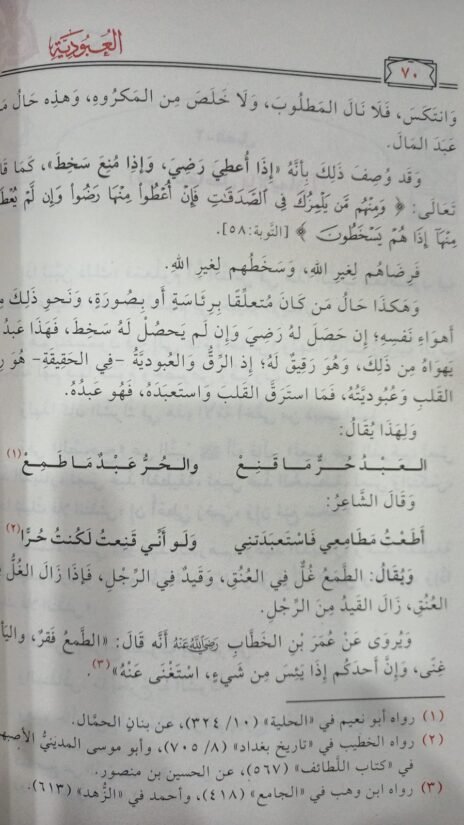 العُبُودِيَّةِ
٧٠
وَانتَكَسَ، فَلَا نَالَ المَطْلُوبَ، وَلَا خَلَصَ مِن المَكْرُوهِ، وَهَذِهِ حَالُ مَ
عَبَدَ المَالَ.
وَقَد وُصِفَ ذَلِكَ بِأنَّهُ «إِذَا أُعطِيَ رَضِيَ، وَإِذَا مُنِعَ سَخِطَ»، كَمَا قَا
تَعَالَى: ﴿ وَمِنْهُم مَّن يَلْمِزُكَ فِى ٱلصَّدَقَٰتِ فَإِنْ أُعْطُوا۟ مِنْهَا رَضُوا۟ وَإِن لَّمْ يُعْطَ
مِنْهَآ إِذَا هُمْ يَسْخَطُونَ ﴾ [التَّوبة: ٥٨].
فَرِضَاهُم لِغيرِ اللهِ، وَسَخَطُهم لِغيرِ اللهِ.
وَهَكذَا حَالُ مَن كَانَ مُتعلِّقًا بِرِئاسَةٍ أَو بِصُورَةٍ، وَنَحوِ ذَلِكَ مِ
أَهوَاءِ نَفسِهِ؛ إِن حَصَلَ لهُ رَضِيَ وَإِن لَم يَحصُلْ لَهُ سَخِطَ، فَهَذَا عَبدُ
يَهوَاهُ مِن ذَلِكَ، وَهُوَ رَقِيقٌ لَهُ؛ إِذ الرِّقُّ وَالعُبوديَّةُ -فِي الحَقِيقَةِ- هُوَ رِ
القَلبِ وَعُبوديَّتُهُ، فَمَا استَرَقَّ القَلبَ وَاستَعبَدَهُ، فَهُو عَبدُهُ.
وَلِهَذَا يُقَالُ:
العَبْدُ حُرٌّ مَا قَنِعْ والحُرُّ عَبْدٌ مَا طَمِعْ (١)
وَقَالَ الشَّاعِرُ:
أَطَعْتُ مَطَامِعِي فَاسْتَعبَدَتنِي وَلَو أَنِّي قَنِعتُ لَكُنتُ حُرًّا (٢)
وَيُقَالُ: الطَّمَعُ غُلٌّ فِي العُنُقِ، وَقَيدٌ فِي الرِّجْلِ، فَإِذَا زَالَ الغُلُّ
العُنُقِ، زَالَ القَيدُ مِنَ الرِّجلِ.
وَيُروَى عَنْ عُمَرَ بْنِ الخَطَّابِ رَضِيَ اللَّهُ عَنْهُ أَنَّه قَالَ: «الطَّمعُ فَقرٌ، وَاليَأ
غِنًى، وَإِنَّ أحدَكُم إِذَا يَئِسَ مِن شَيءٍ، اسْتَغْنَى عَنْهُ» (٣).
(١) رواه أبو نعيم في «الحلية» (١٠/ ٣٢٤)، عن بنانٍ الحمَّال.
(٢) رواه الخطيب في «تاريخ بغداد» (٨/ ٧٠٥)، وأبو موسى المدينيُّ الأصبه
في «كتاب اللَّطائف» (٥٦٧)، عن الحسين بن منصور.
(٣) رواه ابن وهب في «الجامع» (٤١٨)، وأحمد في «الزُّهد» (٦١٣)...